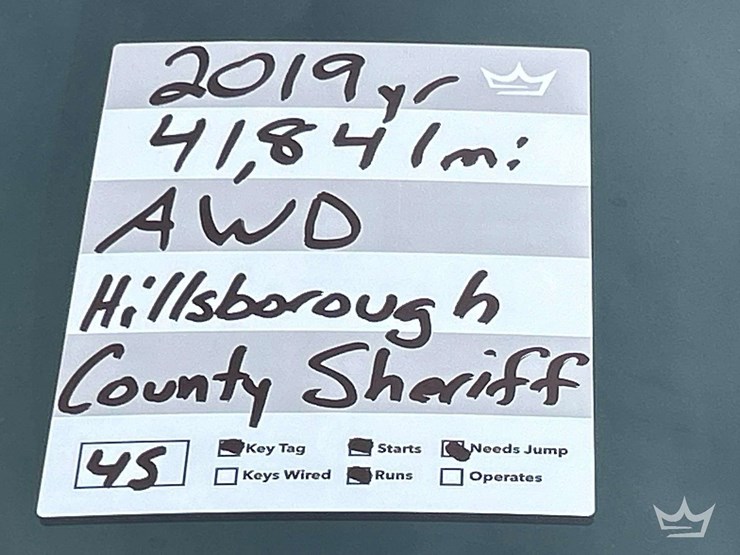 2019 yr
41,841 mi
AWD
Hillsborough
County Sheriff
45 Key Tag Starts Needs Jump
Keys Wired Runs Operates